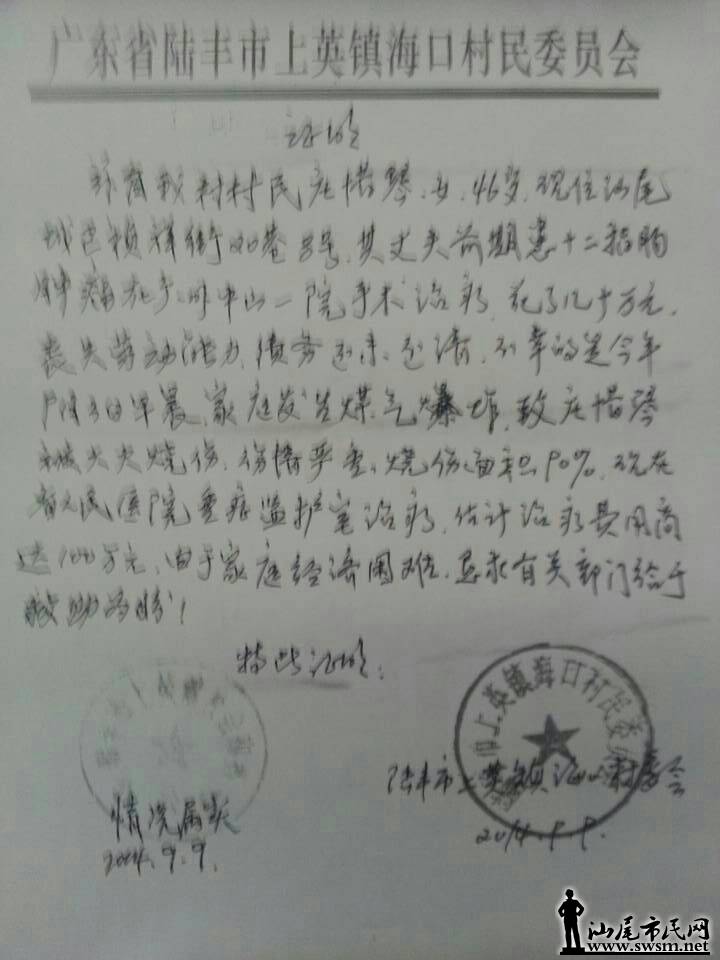 广东省陆丰市上英镇海口村民委员会
证明
兹有我村村民庄惜琴,女,46岁,现住汕尾
城区祯祥街20巷8号,其丈夫前期患十二指肠
肿瘤在广州中山一院手术治疗,花了几十万元,
丧失劳动能力,债务还未还清,不幸的是今年
9月3日早晨,家庭发生煤气爆炸,致庄惜琴
被大火烧伤,伤情严重,烧伤面积90%,现在
省人民医院重症监护室治疗,估计治疗费用高
达100万元,由于家庭经济困难,恳求有关部门给于
救助为盼!
特此证明:
上英镇海口村民委员
陆丰市上英镇海口村委会
2014.9.9.
情况属实
2014.9.9.
汕尾市民网
www.swsm.net